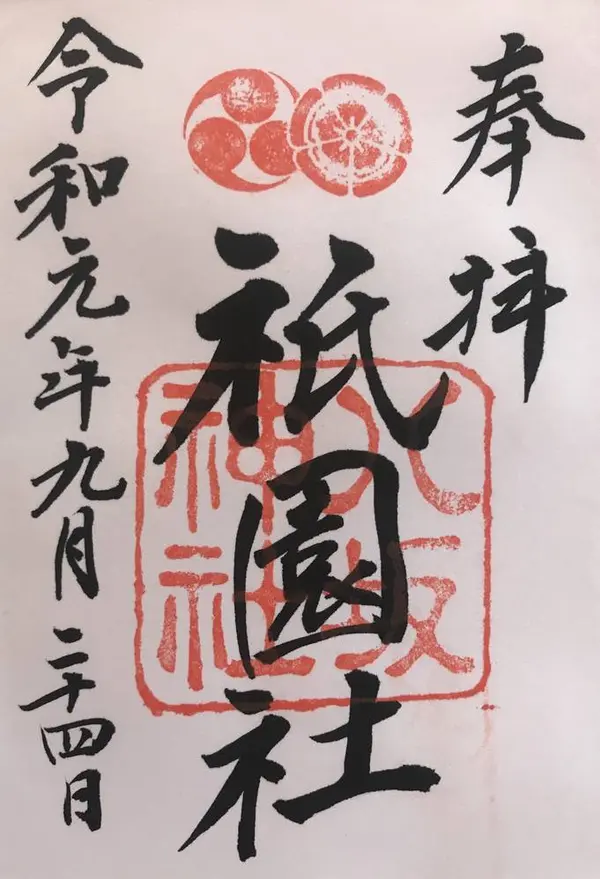 奉拝
祇園社
八坂神社
令和元年九月二十四日